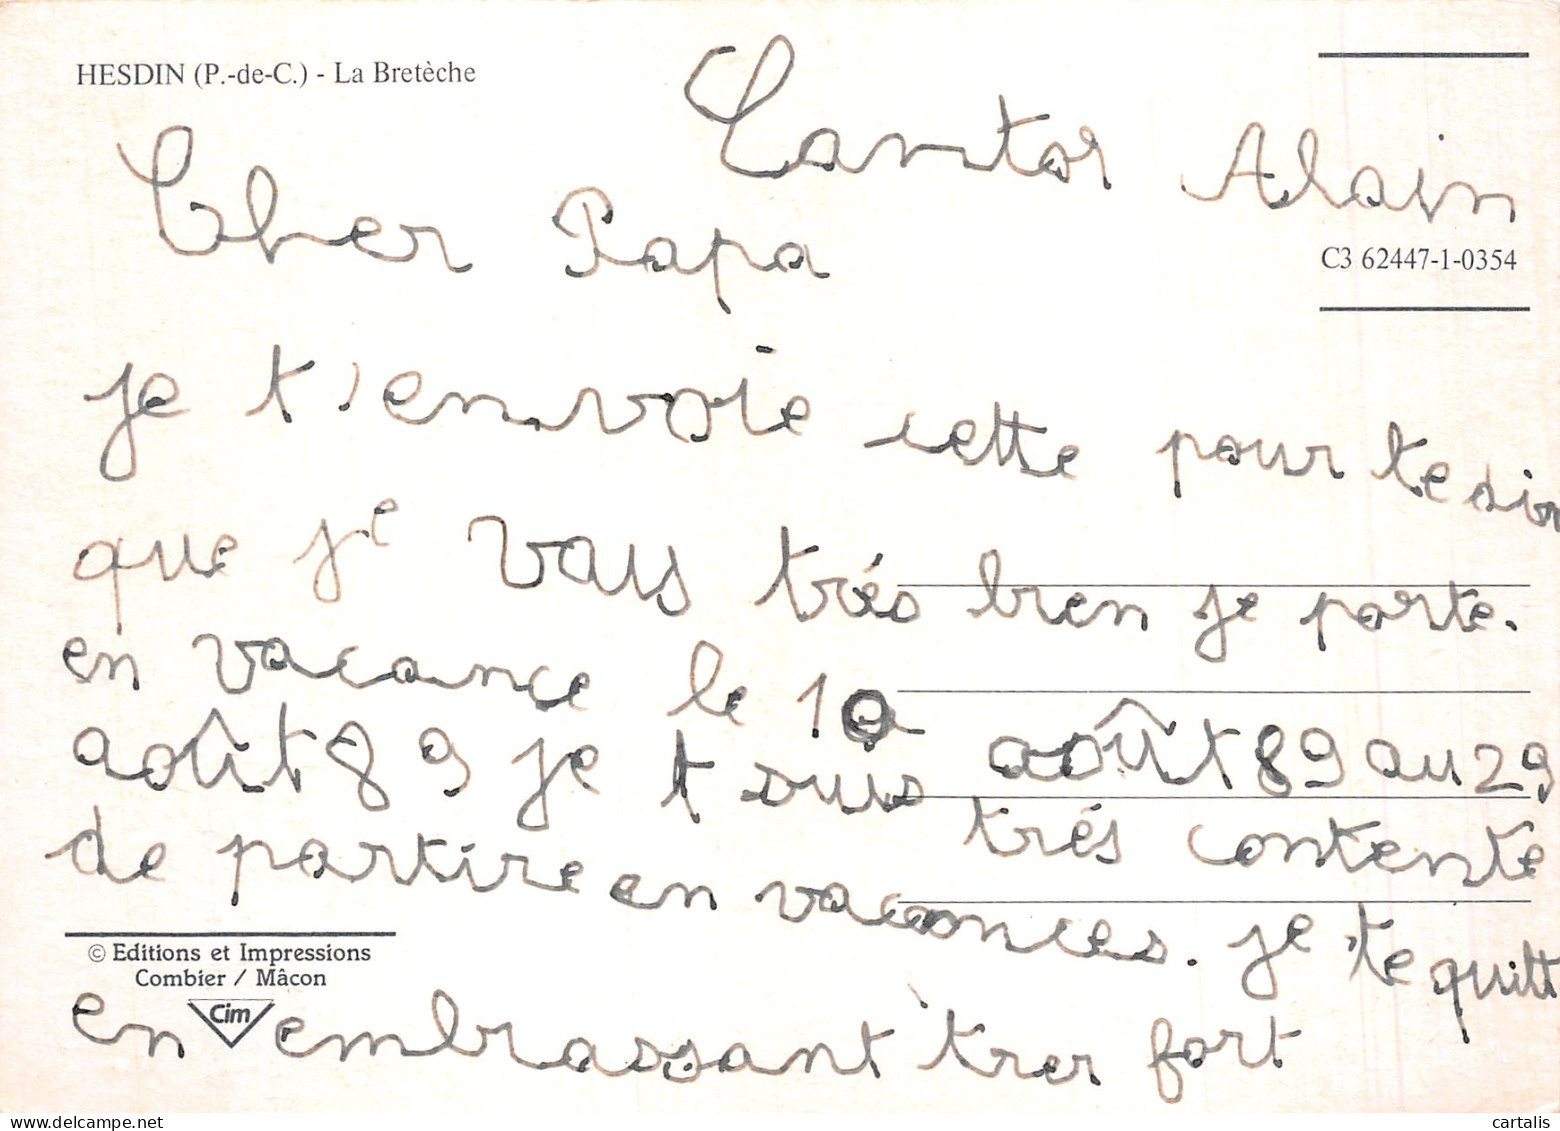 HESDIN (P.-de-C.) - La Bretèche
Cantor Alain
C3 62447-1-0354
Cher Papa
je t'envoie cette pour te dir
que je vais trés bien je porte.
en vacance le 10 août 89 au 29
août 89 je t suis trés contente
de partire en vacances. je te quitt
en embrassant trer fort
© Editions et Impressions
Combier / Mâcon
Cim
www.delcampe.net
cartalis